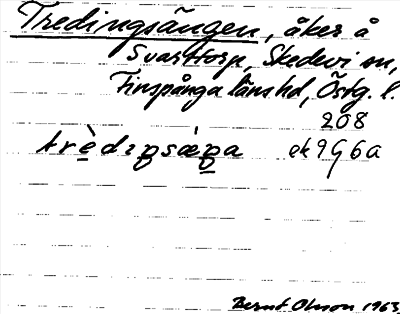 Tredingsängen, åker å
Svarttorp, Skedevi sn,
Finspånga länshd, Östg. l.
208
trèdıŋsæ̀ŋa ek 9G6a
Bernt Olsson 1963